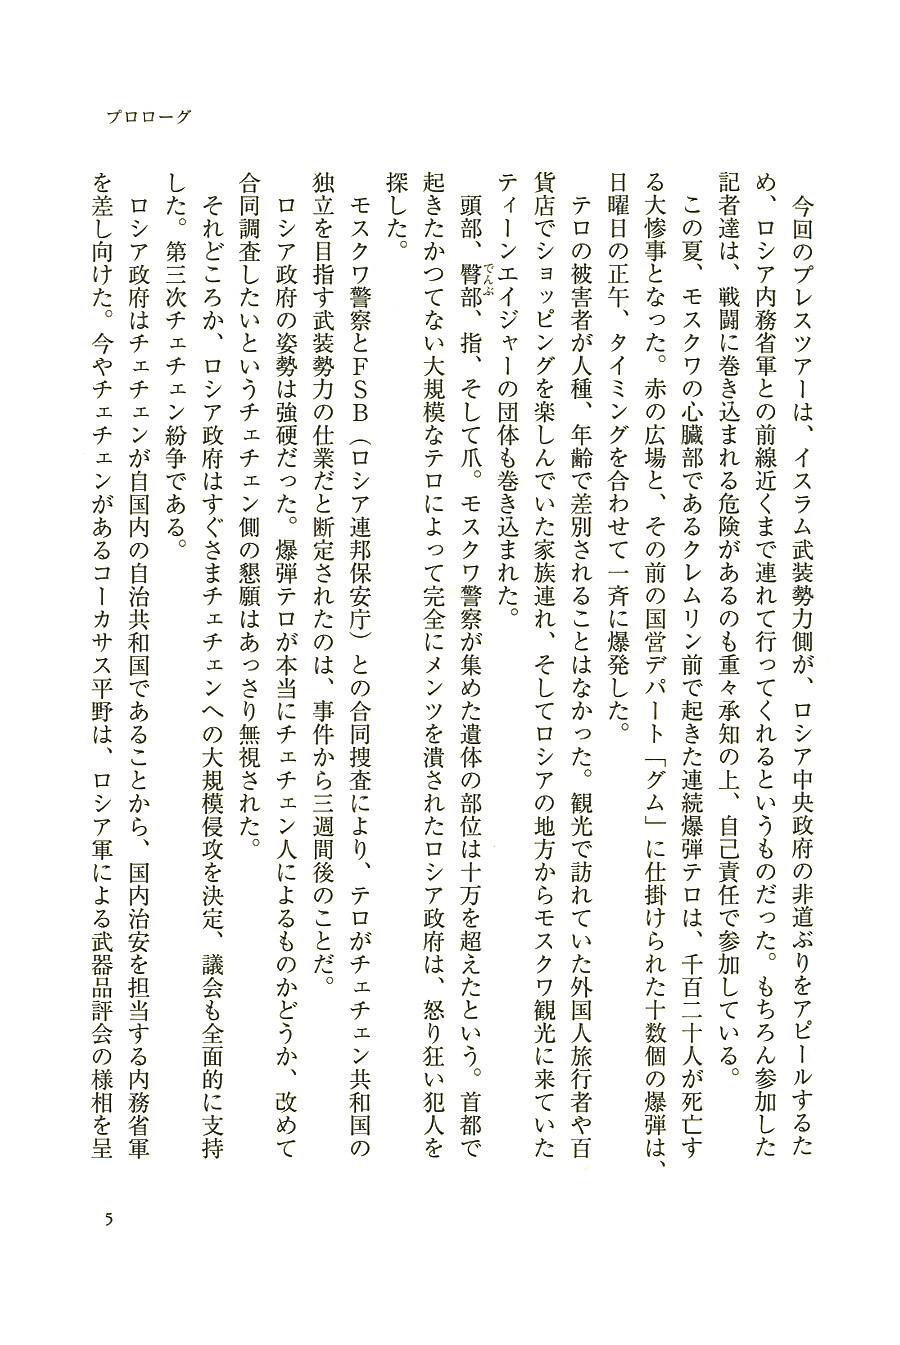 プロローグ
今回のプレスツアーは、イスラム武装勢力側が、ロシア中央政府の非道ぶりをアピールするた
め、ロシア内務省軍との前線近くまで連れて行ってくれるというものだった。もちろん参加した
記者達は、戦闘に巻き込まれる危険があるのも重々承知の上、自己責任で参加している。
この夏、モスクワの心臓部であるクレムリン前で起きた連続爆弾テロは、千百二十人が死亡す
る大惨事となった。赤の広場と、その前の国営デパート「グム」に仕掛けられた十数個の爆弾は、
日曜日の正午、タイミングを合わせて一斉に爆発した。
テロの被害者が人種、年齢で差別されることはなかった。観光で訪れていた外国人旅行者や百
貨店でショッピングを楽しんでいた家族連れ、そしてロシアの地方からモスクワ観光に来ていた
ティーンエイジャーの団体も巻き込まれた。
頭部、臀部でんぶ、指、そして爪。モスクワ警察が集めた遺体の部位は十万を超えたという。首都で
起きたかつてない大規模なテロによって完全にメンツを潰されたロシア政府は、怒り狂い犯人を
探した。
モスクワ警察とFSB（ロシア連邦保安庁）との合同捜査により、テロがチェチェン共和国の
独立を目指す武装勢力の仕業だと断定されたのは、事件から三週間後のことだ。
ロシア政府の姿勢は強硬だった。爆弾テロが本当にチェチェン人によるものかどうか、改めて
合同調査したいというチェチェン側の懇願はあっさり無視された。
それどころか、ロシア政府はすぐさまチェチェンへの大規模侵攻を決定、議会も全面的に支持
した。第三次チェチェン紛争である。
ロシア政府はチェチェンが自国内の自治共和国であることから、国内治安を担当する内務省軍
を差し向けた。今やチェチェンがあるコーカサス平野は、ロシア軍による武器品評会の様相を呈
5